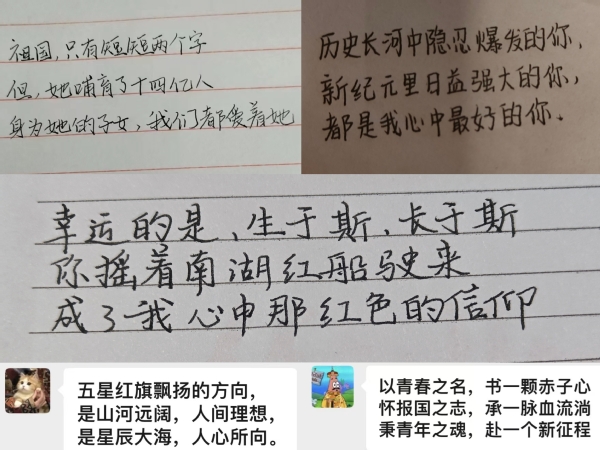 祖国，只有短短两个字
但，她哺育了十四亿人
身为她的子女，我们都爱着她
历史长河中隐忍爆发的你，
新纪元里日益强大的你，
都是我心中最好的你．
幸运的是、生于斯、长于斯
你摇着南湖红船驶来
成了我心中那红色的信仰
五星红旗飘扬的方向，
是山河远阔，人间理想，
是星辰大海，人心所向。
以青春之名，书一颗赤子心
怀报国之志，承一脉血流淌
秉青年之魂，赴一个新征程